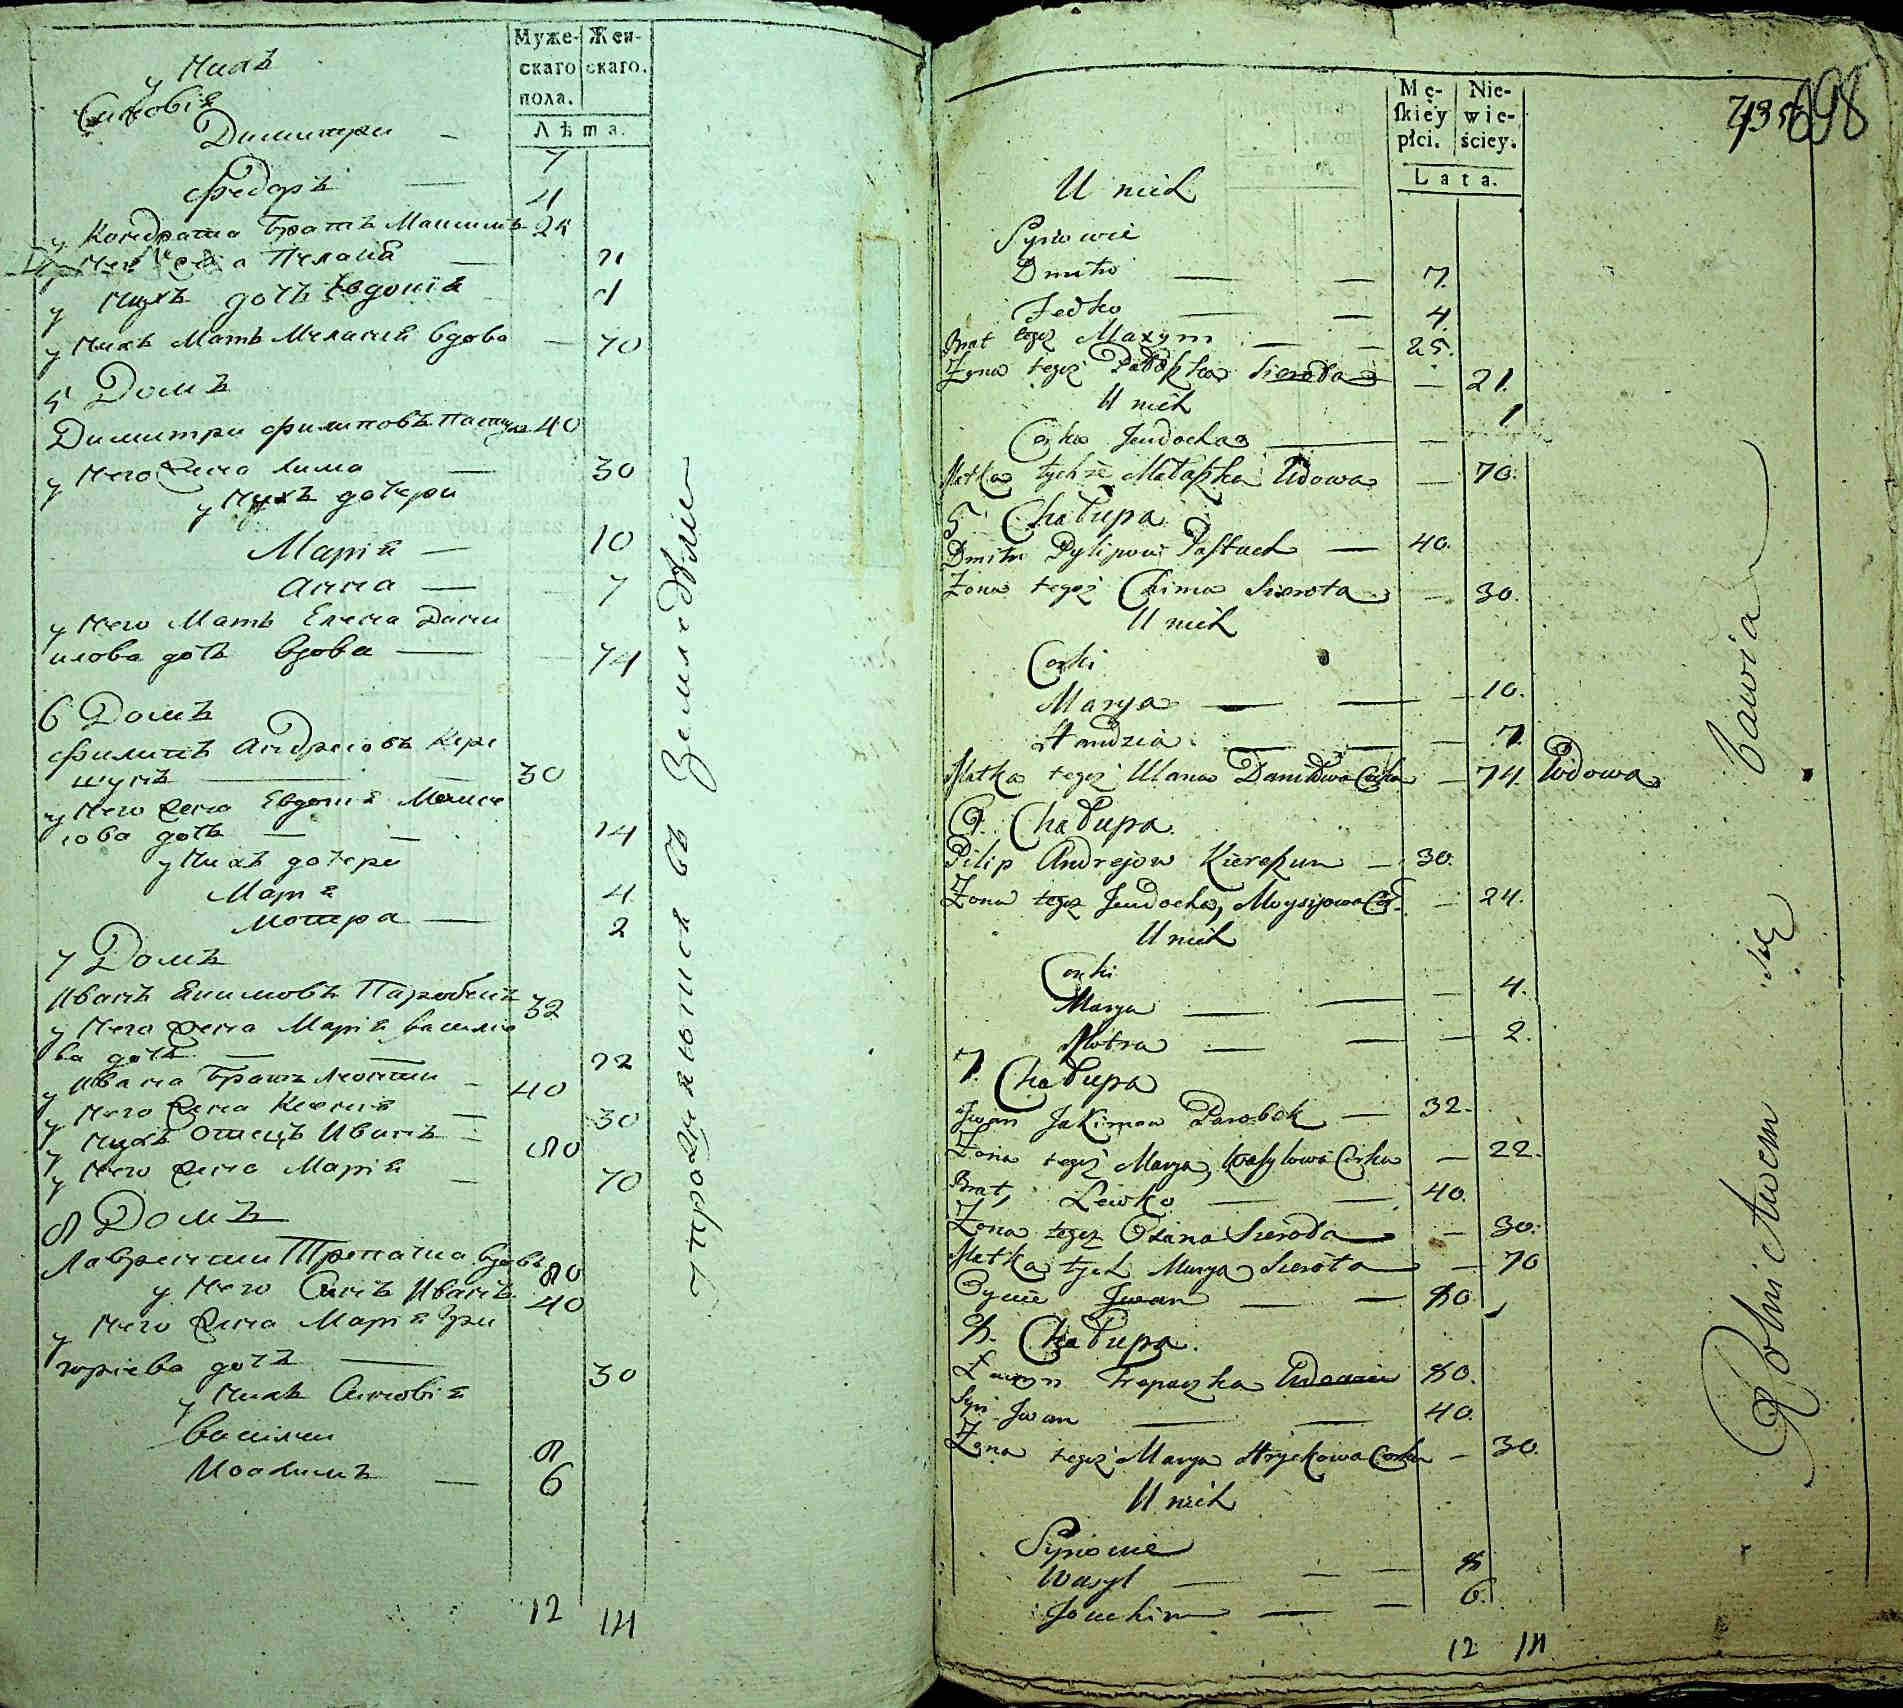 Муже-
скаго
пола.
Жен-
скаго.
Лѣта.
у нихъ
Синовія
Димитри — 7
Федоръ — 4
у Кондрата братъ Машимъ 25
у него жена Пелагія — 21
у нихъ дочъ Евдокія 1
у нихъ Мать Меланія вдова — 70
5 Домъ
Димитри Филиповъ Пастух 40
у него жена Хима — 30
у нихъ дочери
Марія — 10
Анна — 7
у него Мать Елена Дани
илова дочъ вдова — 74
6 Домъ
Филипъ Андреіовъ Кере
шунъ — 30
у него жена Евдокія Моисе
іова дочъ — 24
у нихъ дочери
Марія 4
Мотра — 2
7 Домъ
Иванъ Якимовъ Паробокъ 32
у него жена Марія василіе
ва дочъ — 22
у Ивана братъ Леонти — 40
у него жена Ксенія — 30
у нихъ отецъ Иванъ — 80
у него жена Марія — 70
8 Домъ
Лаврентии Трепачка вдовъ 80
у него Синъ Иванъ 40
у него жена Марія Гри
горіева дочъ — 30
у нихъ Синовія
василии 8
Иоакимъ — 6
12 14
упражняются въ Земледѣліе
Mę-
skiey
płci.
Nie-
wie-
ściey.
Lata.
698
U nich
Synowie
Dmitro — 7.
Fedko — 4.
Brat tegoż Maxym — 25.
Żona tegoż Pałaszka Sierota — 21.
U nich
Corka Jeudocha — 1
Matka tychże Małaszka Wdowa — 70.
5 Chałupa
Dmitr Pylipow Pastuch — 40.
Żona tegoż Chima Sierota — 30.
U nich
Corki
Marya — 10.
Handzia — 7.
Matka tegoż Ulana Daniłowa Corka — 74. Wdowa
6. Chałupa
Pilip Andrejow Kierszun — 30.
Żona tegoż Jeudocha, Moysijowa Cor. — 24.
U nich
Corki
Marya — 4.
Motra — 2.
7. Chałupa
Iwan Jakimow Parobok — 32.
Żona tegoż Marya, Wasylowa Corka — 22.
Brat, Lewko — 40.
Żona tegoż Oxana Sierota — 30.
Matka tych Marya Sierota — 70
Oyciec Iwan — 80.
8. Chałupa.
Trepaczka Wdowiec 80.
Syn Iwan — 40.
Żona tegoż Marya Hryckowa Corka — 30.
U nich
Synowie
Wasyl — 8
Joachim — 6.
12 14
Rolnictwem się bawią